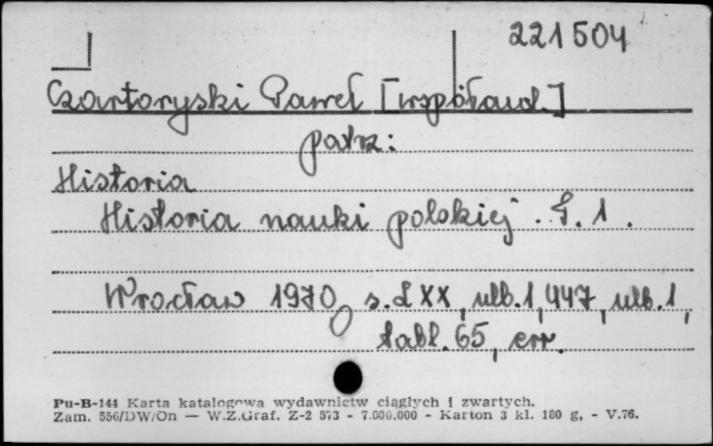 221504
Czartoryski Paweł [współaut.]
patrz:
Historia
Historia nauki polskiej. T. 1.
Wrocław 1970, s. LXX, nlb. 1, 447, nlb. 1,
tabl. 65, err.
Pu-B-144 Karta katalogowa wydawnictw ciągłych i zwartych.
Zam. 556/DW/On — W.Z.Graf. Z-2 573 - 7.000.000 - Karton 3 kl. 180 g, - V.76.